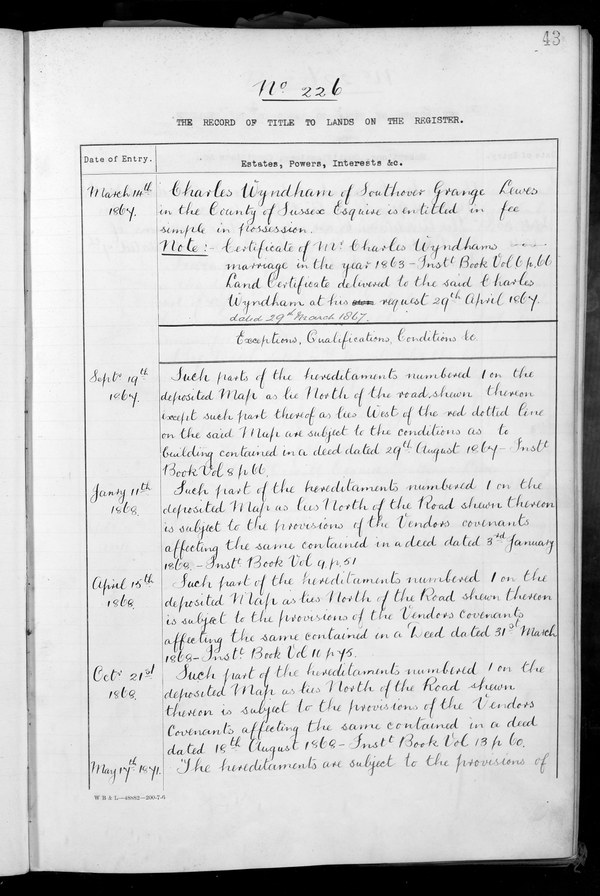 43
No 226
THE RECORD OF TITLE TO LANDS ON THE REGISTER.
Date of Entry.
Estates, Powers, Interests &c.
March 14th
1867.
Charles Wyndham of Southover Grange Lewes
in the County of Sussex Esquire is entitled in fee
simple in possession.
Note:- Certificate of Mr Charles Wyndhams
marriage in the year 1863 - Instt Book Vol 6 p. 66
Land Certificate delivered to the said Charles
Wyndham at his request 29th April 1867.
dated 29th March 1867.
Exceptions, Qualifications, Conditions &c
Septr 19th
1867.
Such parts of the hereditaments numbered 1 on the
deposited Map as lie North of the road shewn thereon
except such part thereof as lies West of the red dotted line
on the said Map are subject to the conditions as to
building contained in a deed dated 29th August 1867 - Instt
Book Vol 8 p 66.
Janry 11th
1868.
Such part of the hereditaments numbered 1 on the
deposited Map as lies North of the Road shewn thereon
is subject to the provisions of the Vendors covenants
affecting the same contained in a deed dated 3rd January
1868. - Instt Book Vol 9 p. 51
April 15th
1868.
Such part of the hereditaments numbered 1 on the
deposited Map as lies North of the Road shewn thereon
is subject to the provisions of the Vendors Covenants
affecting the same contained in a Deed dated 31st March
1868 - Instt Book Vol 11 p 75.
Octr 21st
1868.
Such part of the hereditaments numbered 1 on the
deposited Map as lies North of the Road shewn
thereon is subject to the provisions of the Vendors
Covenants affecting the same contained in a deed
dated 18th August 1868 - Instt Book Vol 13 p 60.
May 17th 1871.
The hereditaments are subject to the provisions of
W B & L—48682—200-7-6